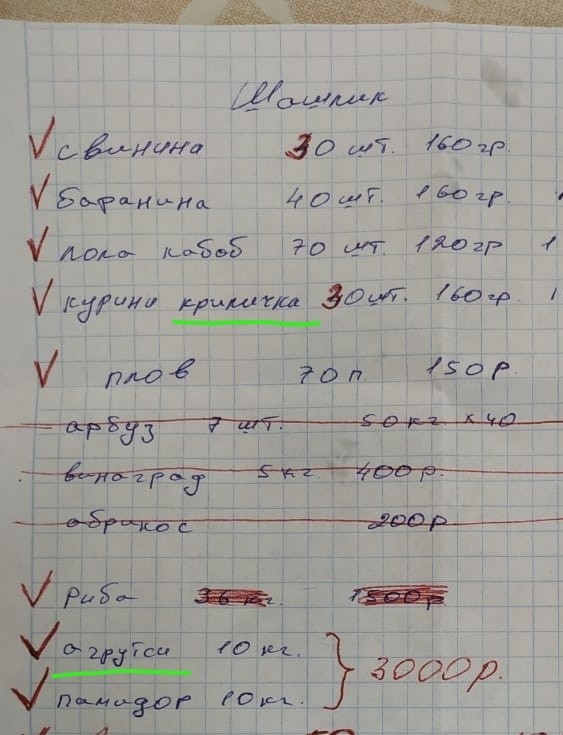 Шашлик
свинина 30 шт. 160гр.
баранина 40 шт. 160гр.
лола кабоб 70 шт. 120гр 1
курини криличка 30шт. 160гр. 1
плов 70п. 150р.
арбуз 7 шт. 50кг х40
виноград 5кг. 400р.
абрикос 200р
риба 36кг. 1500р
агрутси 10кг.
3000р.
памидор 10кг.